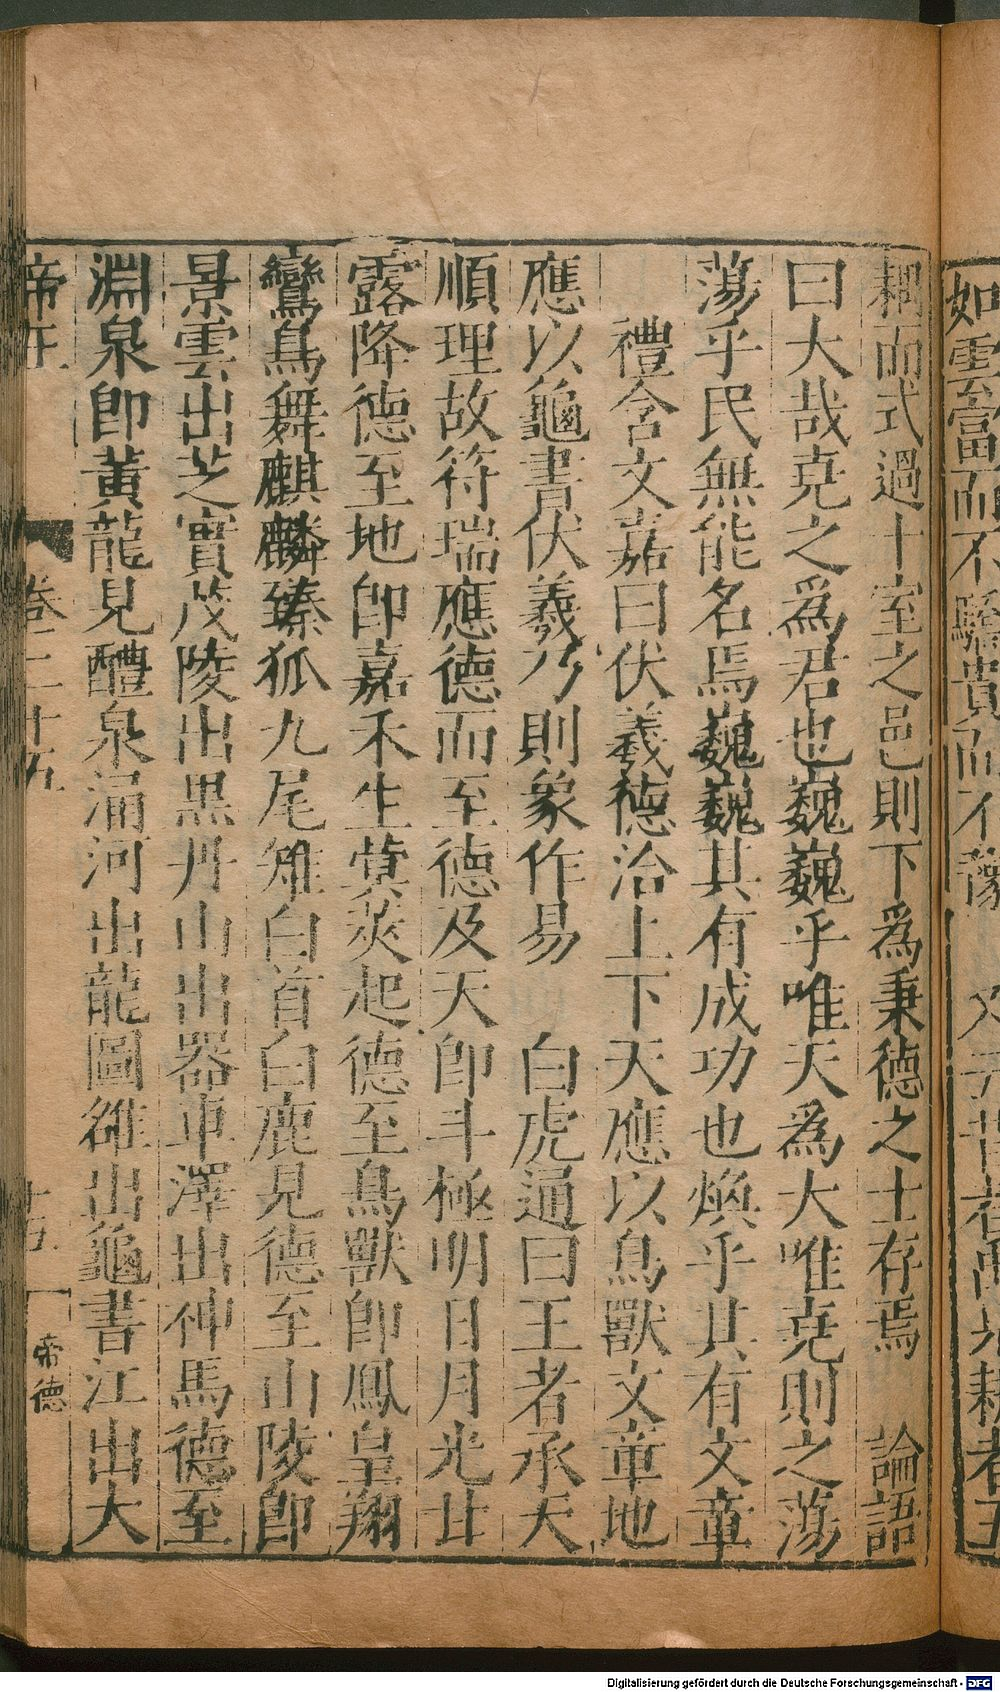 如雲富而不驕貴而不豫　又云昔者禹見耕者五
耦而式過十室之邑則下爲秉德之士存焉　論語
曰大哉堯之爲君也巍巍乎唯天爲大唯堯則之蕩
蕩乎民無能名焉巍巍其有成功也煥乎其有文章
禮含文嘉曰伏羲德洽上下天應以鳥獸文章地
應以龜書伏羲乃則象作易　白虎通曰王者承天
順理故符瑞應德而至德及天即斗極明日月光甘
露降德至地即嘉禾生蓂莢起德至鳥獸即鳳皇翔
鸞鳥舞麒麟臻狐九尾雉白首白鹿見德至山陵即
景雲出芝實茂陵出黒丹山出器車澤出神馬德至
淵泉即黃龍見醴泉涌河出龍圖雒出龜書江出大
帝王　卷二十五　十五　帝德
Digitalisierung gefördert durch die Deutsche Forschungsgemeinschaft - DFG